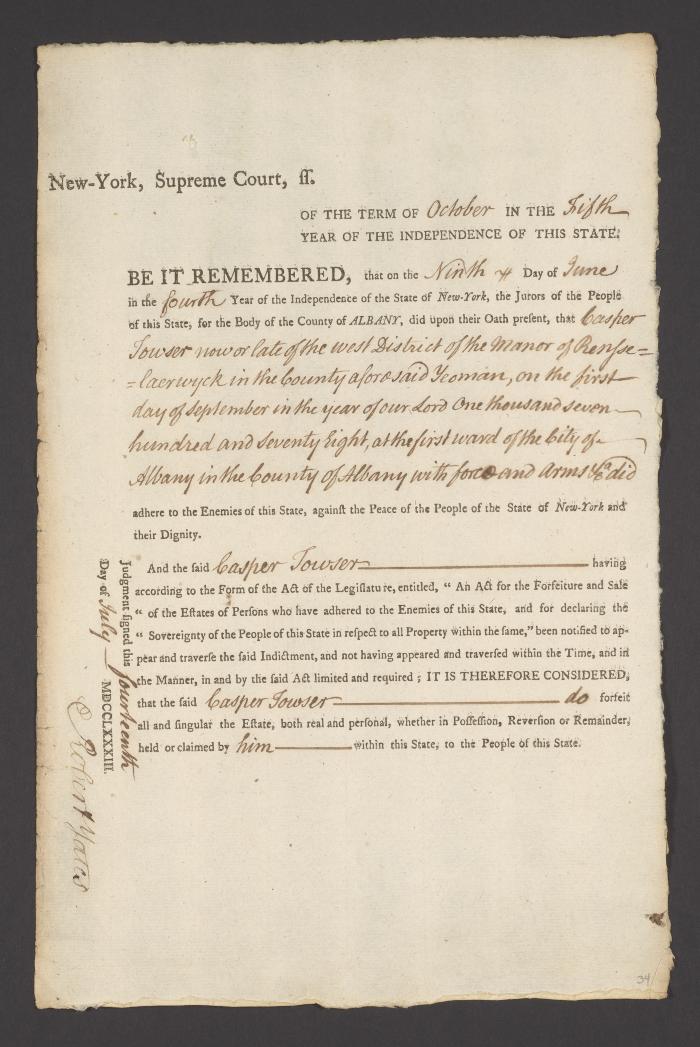 New-York, Supreme Court, ſſ.
OF THE TERM OF October IN THE Fifth
YEAR OF THE INDEPENDENCE OF THIS STATE.
BE IT REMEMBERED, that on the Ninth Day of June
in the fourth Year of the Independence of the State of New-York, the Jurors of the People
of this State, for the Body of the County of ALBANY, did upon their Oath preſent, that Casper
Towser now or late of the west District of the Manor of Rensse=
=laerwyck in the County aforesaid Yeoman, on the first
day of september in the year of our Lord One thousand seven
hundred and seventy Eight, at the first ward of the City of
Albany in the County of Albany with force and Arms &ca did
adhere to the Enemies of this State, againſt the Peace of the People of the State of New-York and
their Dignity.
And the ſaid Casper Towser having
according to the Form of the Act of the Legiſlature, entitled, “ An Act for the Forfeiture and Sale
“ of the Eſtates of Perſons who have adhered to the Enemies of this State, and for declaring the
“ Sovereignty of the People of this State in reſpect to all Property within the ſame,” been notified to ap-
pear and traverſe the ſaid Indictment, and not having appeared and traverſed within the Time, and in
the Manner, in and by the ſaid Act limited and required ; IT IS THEREFORE CONSIDERED,
that the ſaid Casper Towser do forfeit
all and ſingular the Eſtate, both real and perſonal, whether in Poſſeſſion, Reverſion or Remainder,
held or claimed by him within this State, to the People of this State.
Judgment ſigned this fourteenth
Day of July MDCCLXXXIII.
Robert Yates
34